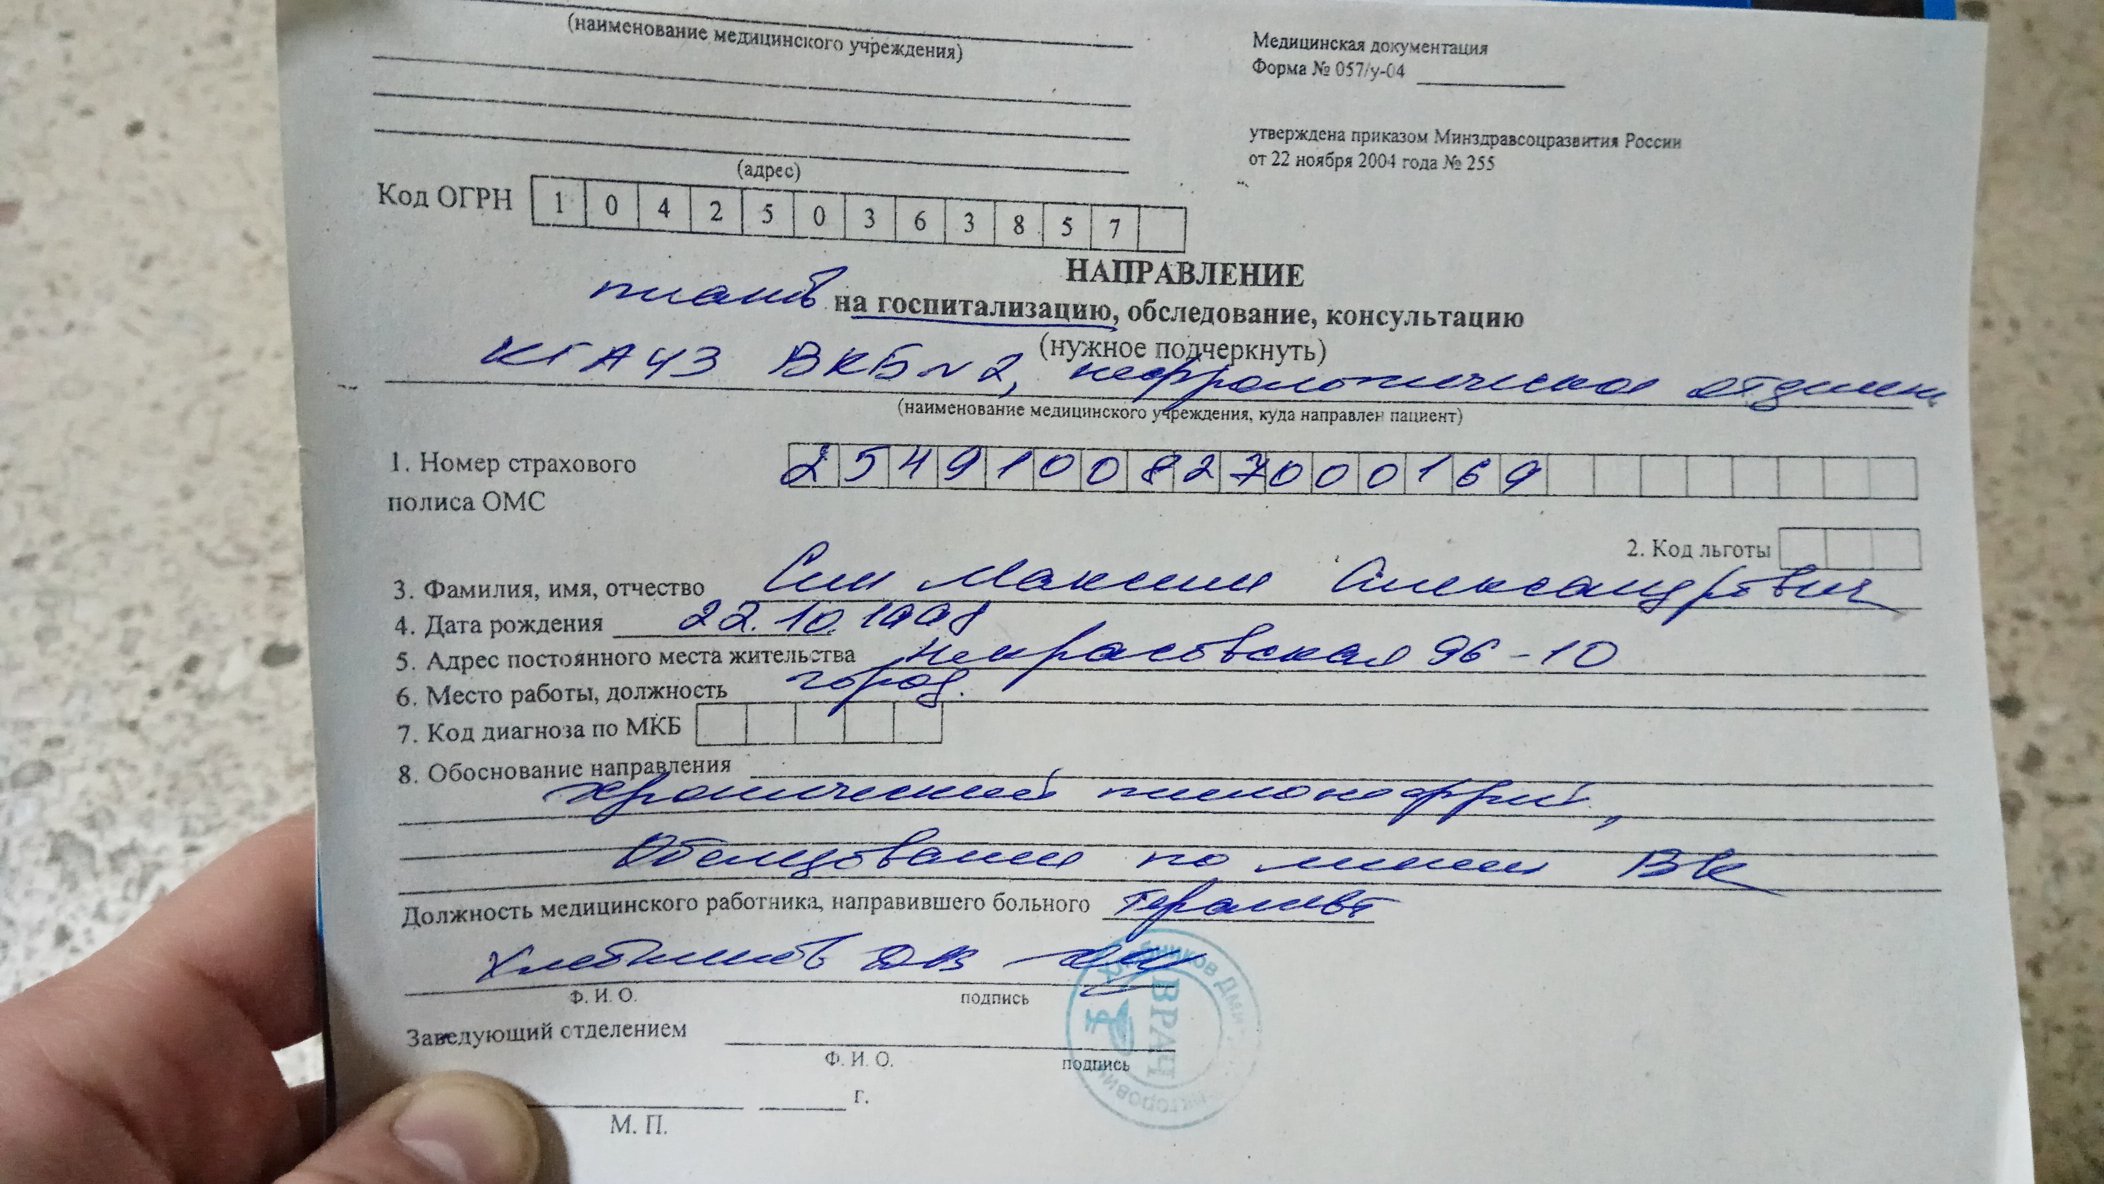 (наименование медицинского учреждения)
Медицинская документация
Форма № 057/у-04
утверждена приказом Минздравсоцразвития России
от 22 ноября 2004 года № 255
(адрес)
Код ОГРН 1 0 4 2 5 0 3 6 3 8 5 7
НАПРАВЛЕНИЕ
на госпитализацию, обследование, консультацию
(нужное подчеркнуть)
КГАУЗ ВКБ№2, нефрологическое отделен
(наименование медицинского учреждения, куда направлен пациент)
1. Номер страхового 2 5 4 9 1 0 0 8 2 7 0 0 0 1 6 9
полиса ОМС
2. Код льготы
3. Фамилия, имя, отчество Син Максим Александрович
4. Дата рождения 22.10.1998
5. Адрес постоянного места жительства Некрасовская 96-10
6. Место работы, должность город.
7. Код диагноза по МКБ
8. Обоснование направления
хронический пиелонефрит,
Обследование по линии ВК
Должность медицинского работника, направившего больного терапевт
Хлебников ДВ
Ф. И. О. подпись
Заведующий отделением
Ф. И. О. подпись
г.
М. П.
ВРАЧ